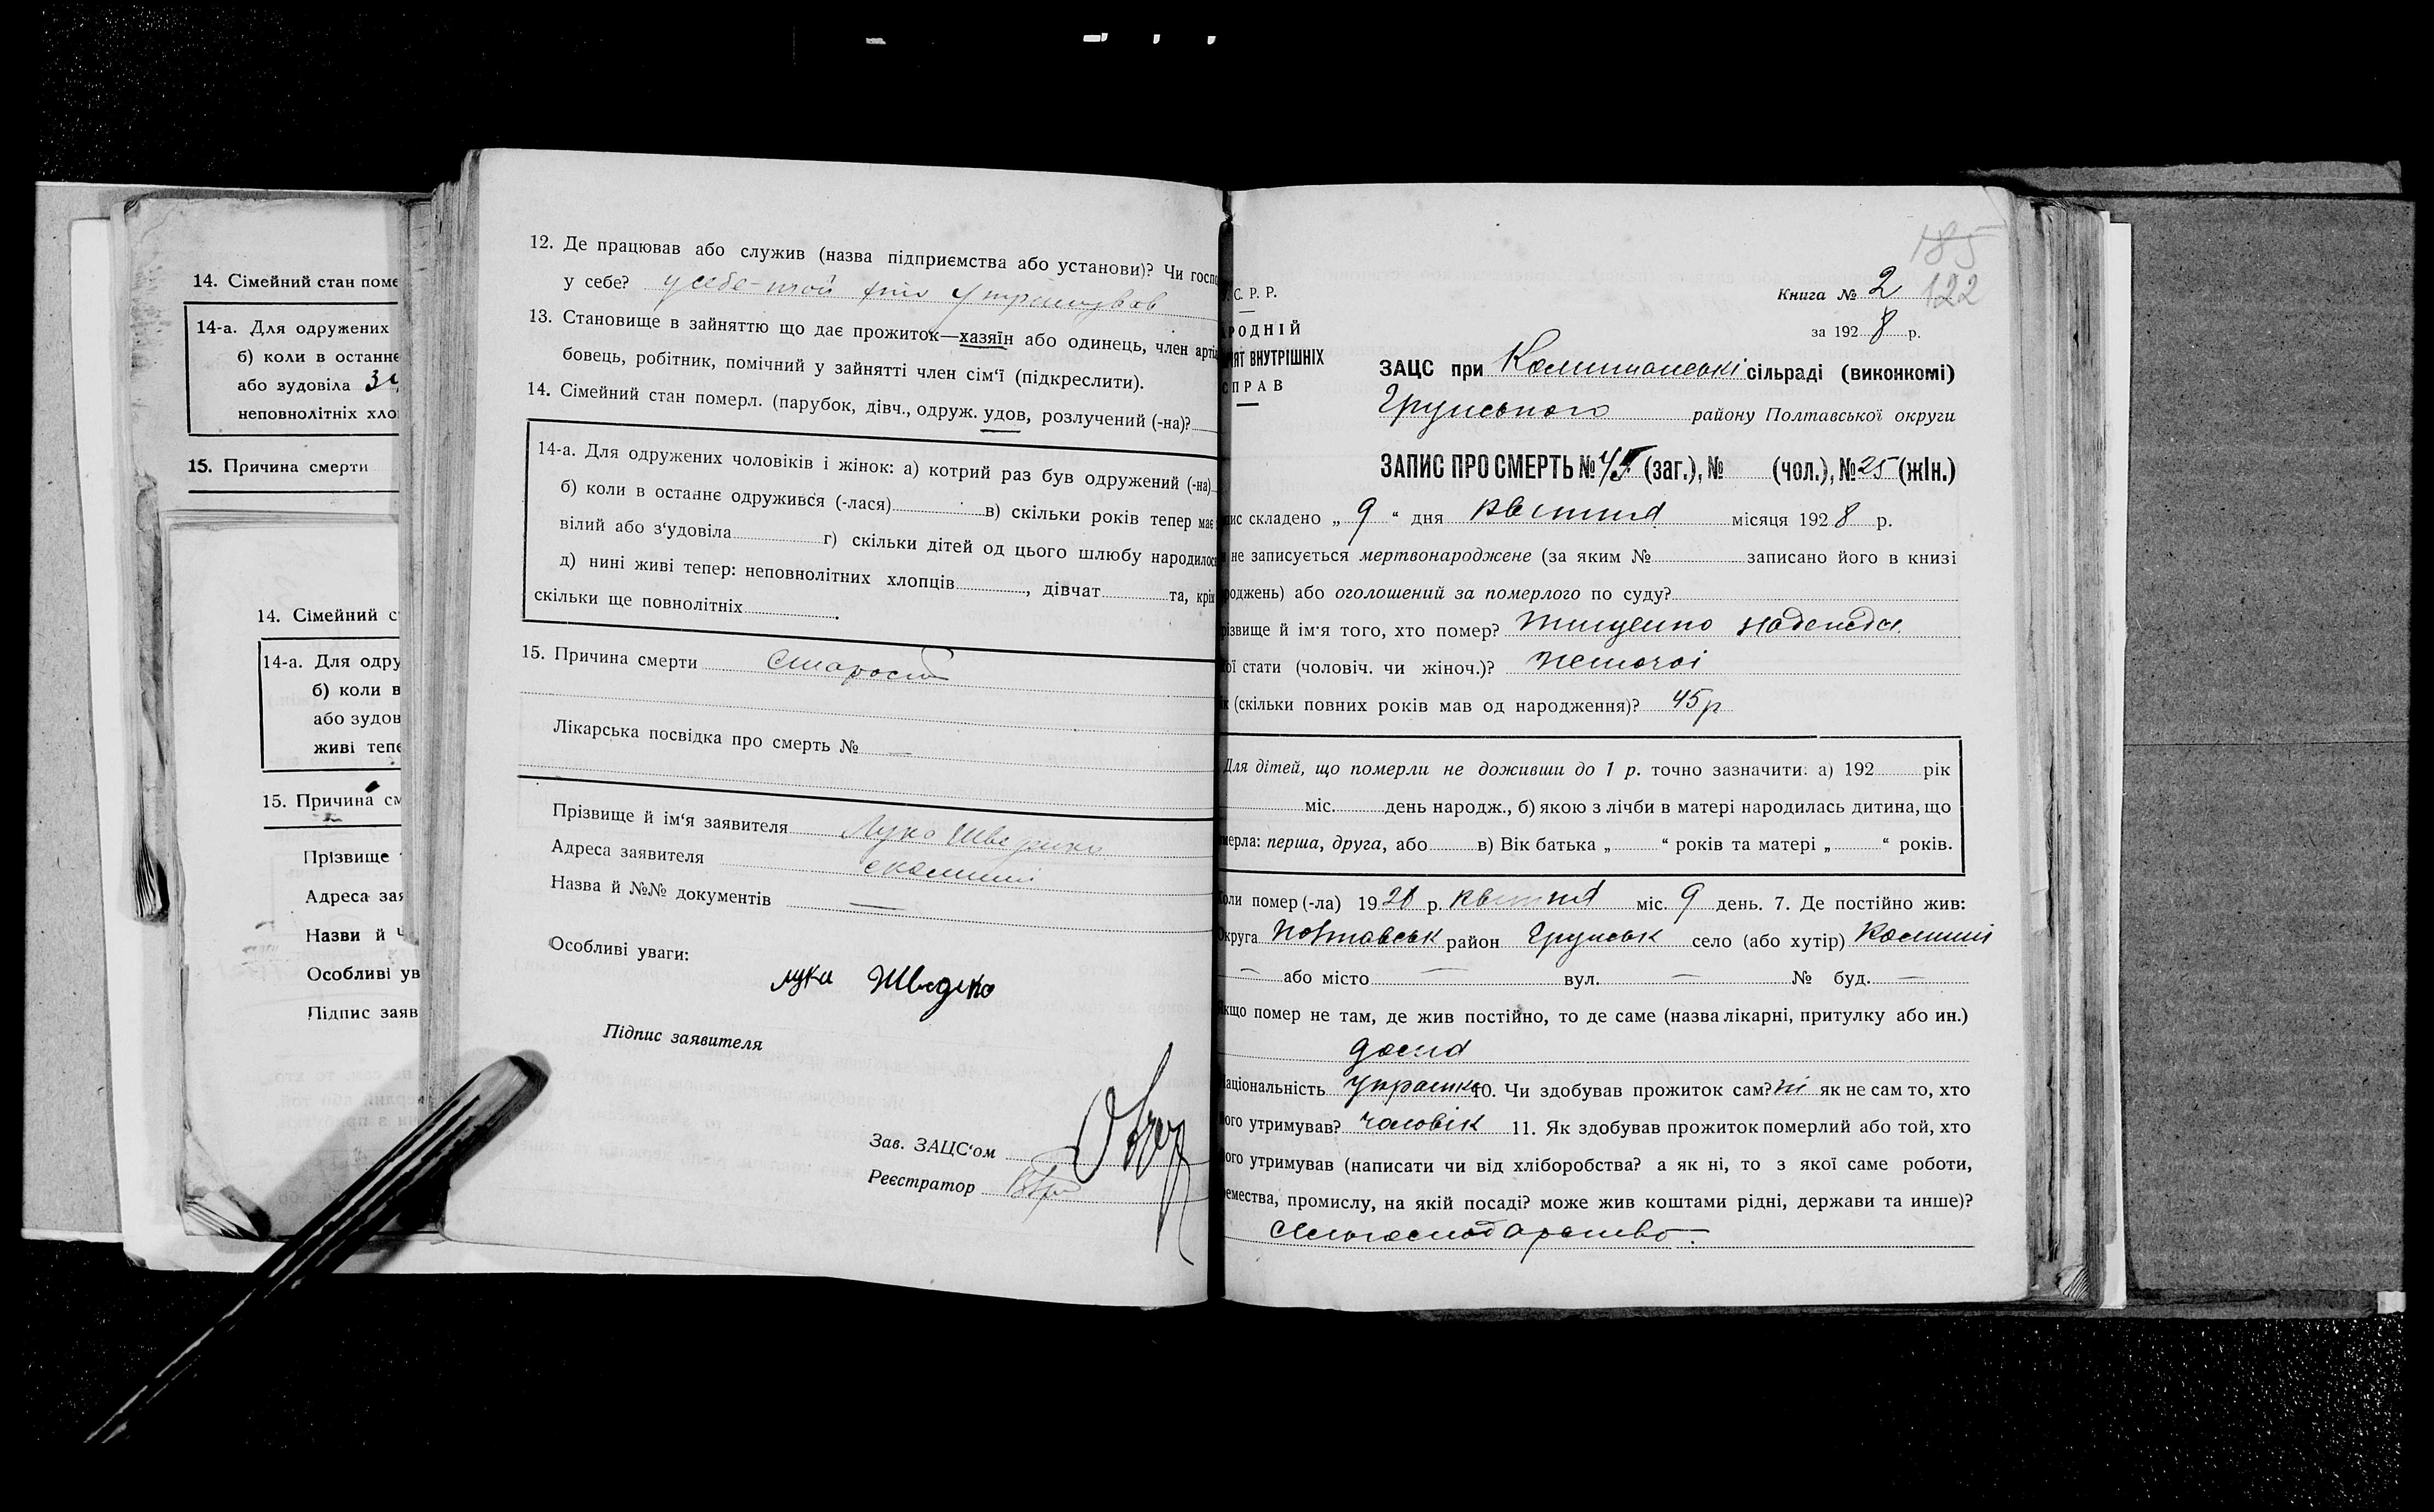 14. Сімейний стан поме
14-а. Для одружених
б) коли в останнє
або зудовіла
неповнолітніх хло
15. Причина смерти
14. Сімейний с
14-а. Для одру
б) коли в
або зудов
живі тепе
15. Причина см
Прізвище
Адреса зая
Назви й ч
Особливі ув
Підпис заяв
12. Де працював або служив (назва підприємства або установи)? Чи госпо
у себе? у себе-той хто утримував
13. Становище в зайняттю що дає прожиток—хазяїн або одинець, член арті
бовець, робітник, помічний у зайнятті член сім‘ї (підкреслити).
14. Сімейний стан померл. (парубок, дівч., одруж. удов, розлучений (-на)?
14-а. Для одружених чоловіків і жінок: а) котрий раз був одружений (-на)
б) коли в останнє одружився (-лася) в) скільки років тепер має
вілий або з‘удовіла г) скільки дітей од цього шлюбу народилось
д) нині живі тепер: неповнолітних хлопців, дівчат та, крім
скільки ще повнолітніх.
15. Причина смерти старость
Лікарська посвідка про смерть № —
Прізвище й ім‘я заявителя Лука Шведенко
Адреса заявителя
Назва й №№ документів —
Особливі уваги:
лука
Підпис заявителя
Зав. ЗАЦС‘ом
Реєстратор
185
122
С. Р. Р.
РОДНІЙ
ІЯТ ВНУТРІШНІХ
СПРАВ
Книга № 2
за 1928 р.
ЗАЦС при сільраді (виконкомі)
Грунського району Полтавської округи
ЗАПИС ПРО СМЕРТЬ № 45 (заг.), № (чол.), № 25 (жін.)
пис складено „ 9 “ дня квітня місяця 1928 р.
не записується мертвонароджене (за яким № записано його в книзі
роджень) або оголошений за померлого по суду?
різвище й ім‘я того, хто помер? Тищенко Надежда
ої стати (чоловіч. чи жіноч.)? жіночої
ік (скільки повних років мав од народження)? 45 р
Для дітей, що померли не доживши до 1 р. точно зазначити: а) 192 рік
міс. день народж., б) якою з лічби в матері народилась дитина, що
мерла: перша, друга, або в) Вік батька „ “ років та матері „ “ років.
Коли помер (-ла) 1928 р. квітня міс. 9 день. 7. Де постійно жив:
Округа Полтавськ район Грунськ село (або хутір) Комиші
— або місто — вул. — № буд. —
Якщо помер не там, де жив постійно, то де саме (назва лікарні, притулку або ин.)
дома
Національність українка 10. Чи здобував прожиток сам? ні як не сам то, хто
його утримував? чоловік 11. Як здобував прожиток померлий або той, хто
його утримував (написати чи від хліборобства? а як ні, то з якої саме роботи,
ремества, промислу, на якій посаді? може жив коштами рідні, держави та инше)?